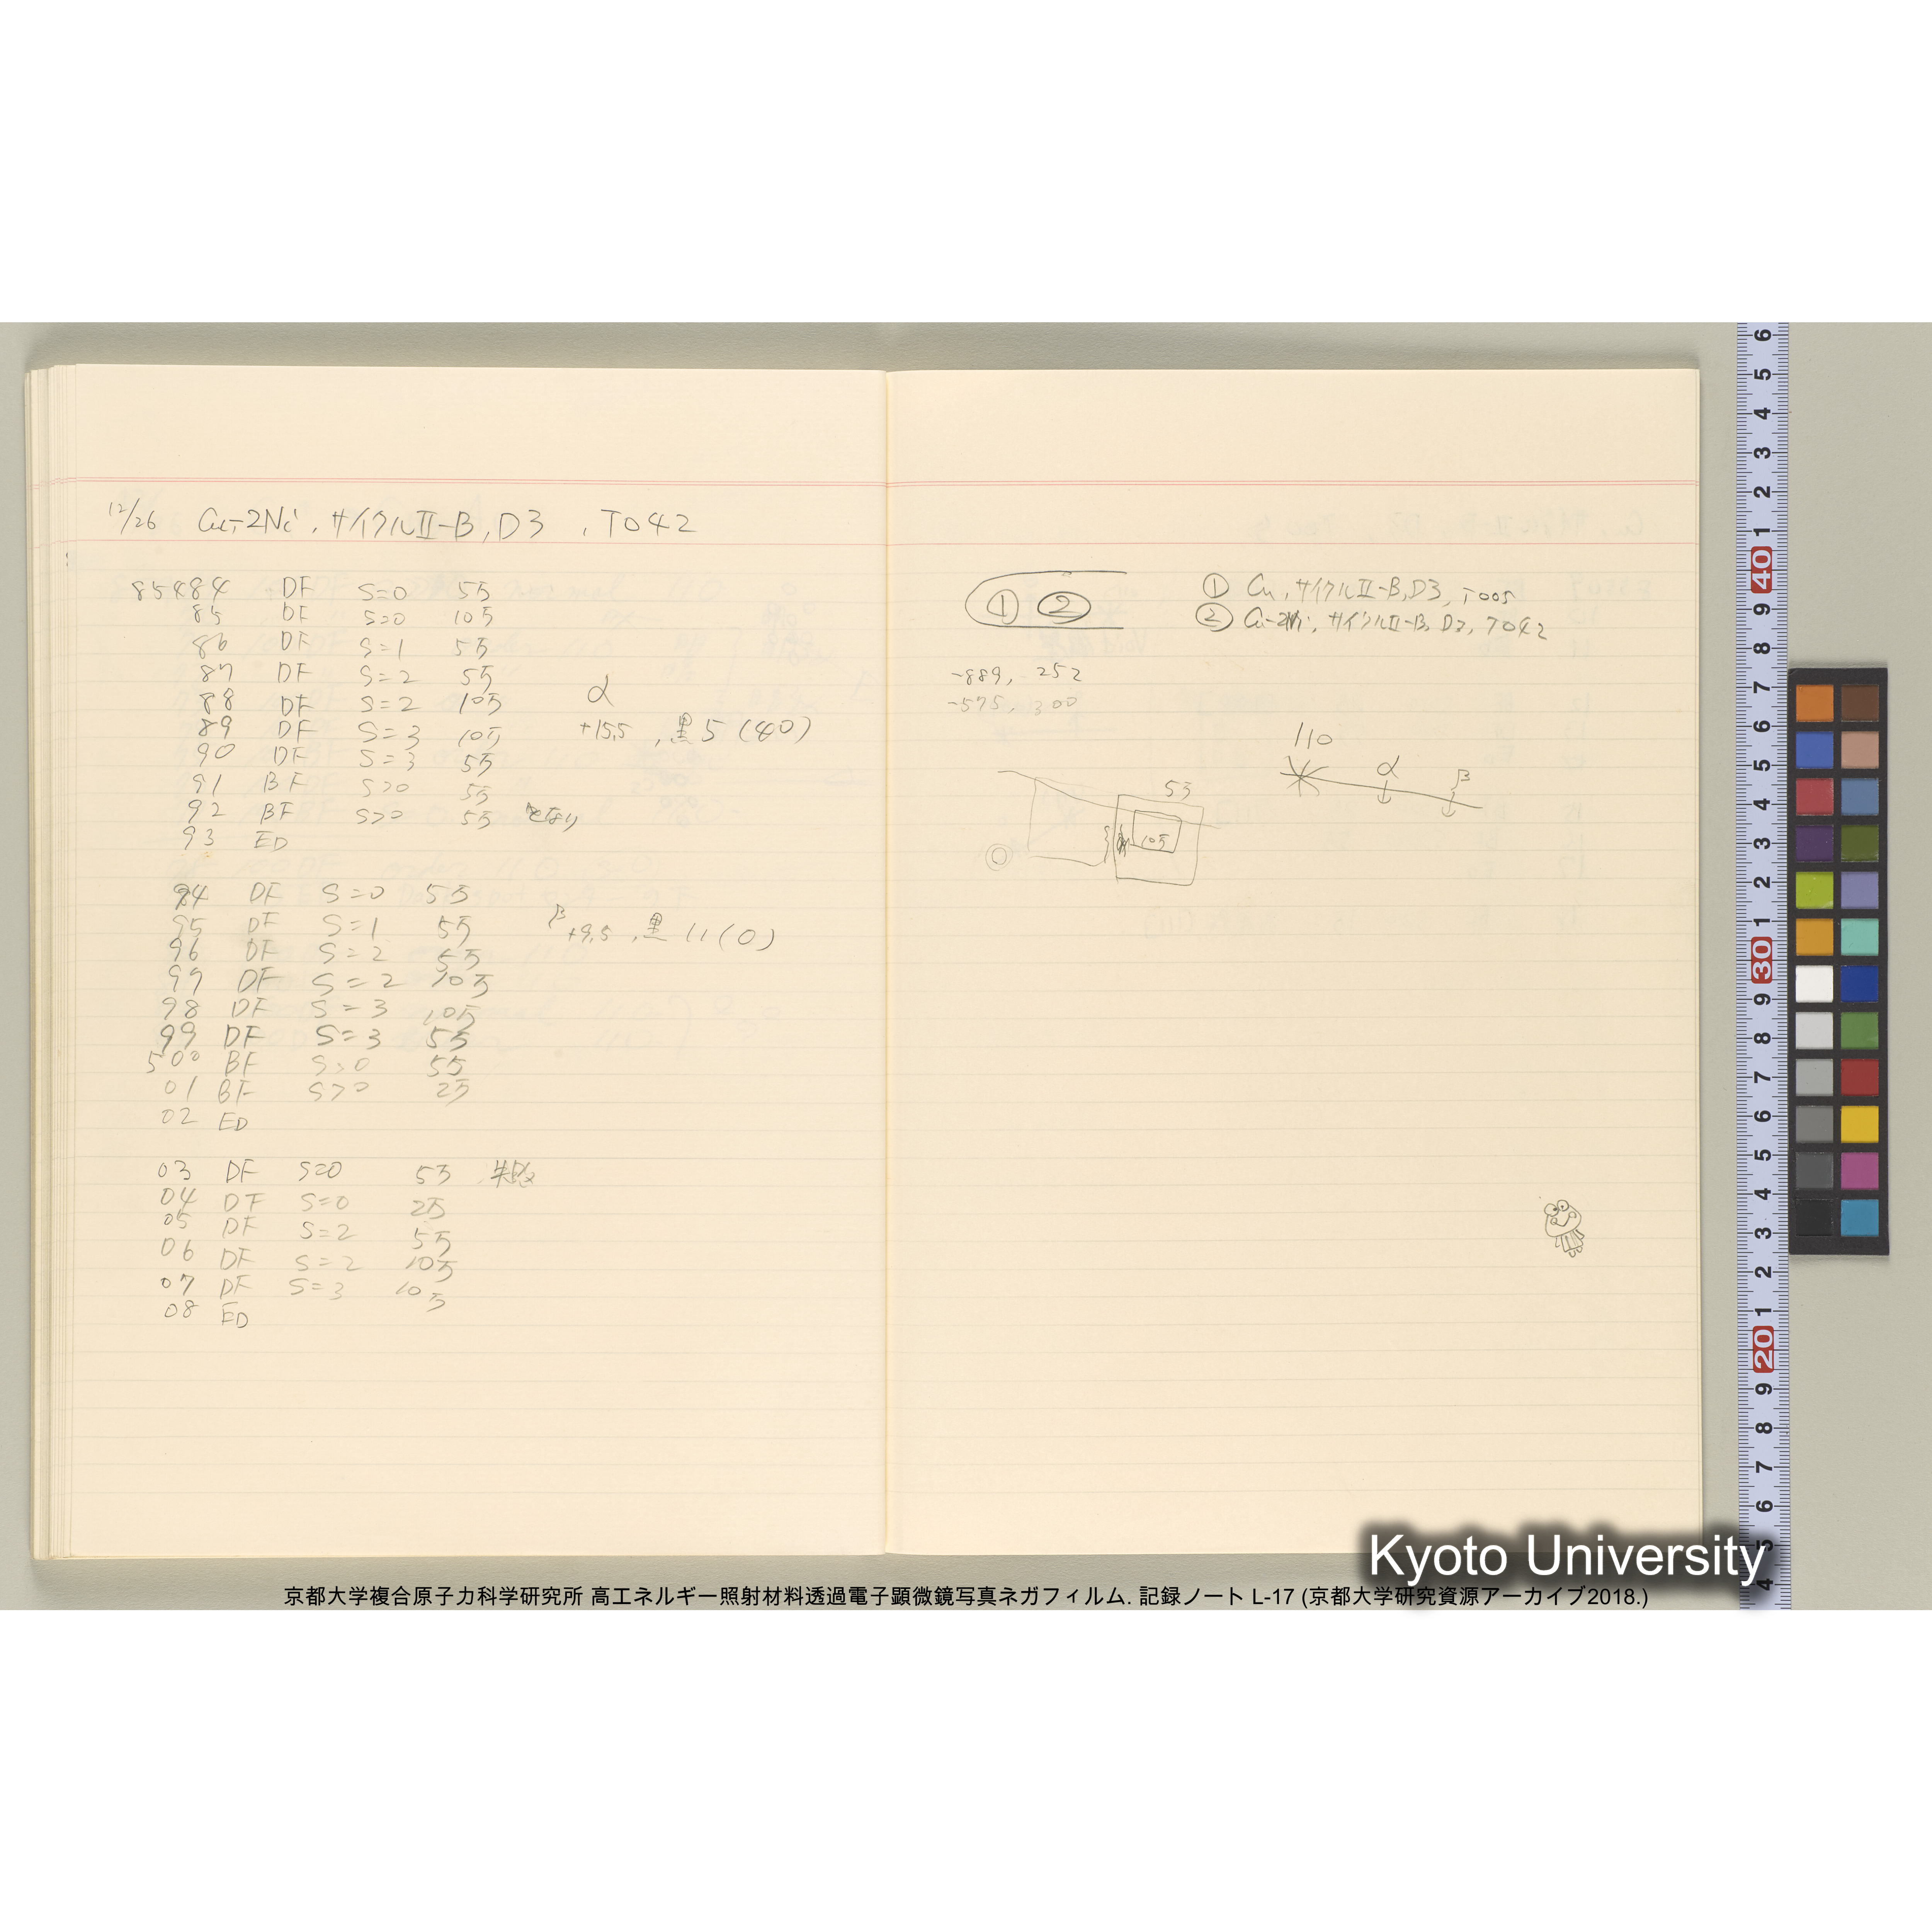 12/26 Cu-2Ni, サイクルII-B, D3, T042
85484 DF S=0 5万
85 DF S=0 10万
86 DF S=1 5万
87 DF S=2 5万
88 DF S=2 10万
α
89 DF S=3 10万
+15.5, 黒5(40)
90 DF S=3 5万
91 BF S>0 5万
92 BF S>0 5万 となり
93 ED
94 DF S=0 5万
95 DF S=1 5万
β +9.5, 黒11(0)
96 DF S=2 5万
97 DF S=2 10万
98 DF S=3 10万
99 DF S=3 5万
500 BF S>0 5万
01 BF S>0 2万
02 ED
03 DF S=0 5万 失敗
04 DF S=0 2万
05 DF S=2 5万
06 DF S=2 10万
07 DF S=3 10万
08 ED
① ②
① Cu, サイクルII-B, D3, T005
② Cu-2Ni, サイクルII-B, D3, T042
-889, 252
-575, 300
110
α
β
5万
10万
6 5 4 3 2 1 40 9 8 7 6 5 4 3 2 1 30 9 8 7 6 5 4 3 2 1 20 9 8 7 6 5 4
Kyoto University
京都大学複合原子力科学研究所 高エネルギー照射材料透過電子顕微鏡写真ネガフィルム. 記録ノート L-17 (京都大学研究資源アーカイブ2018.)